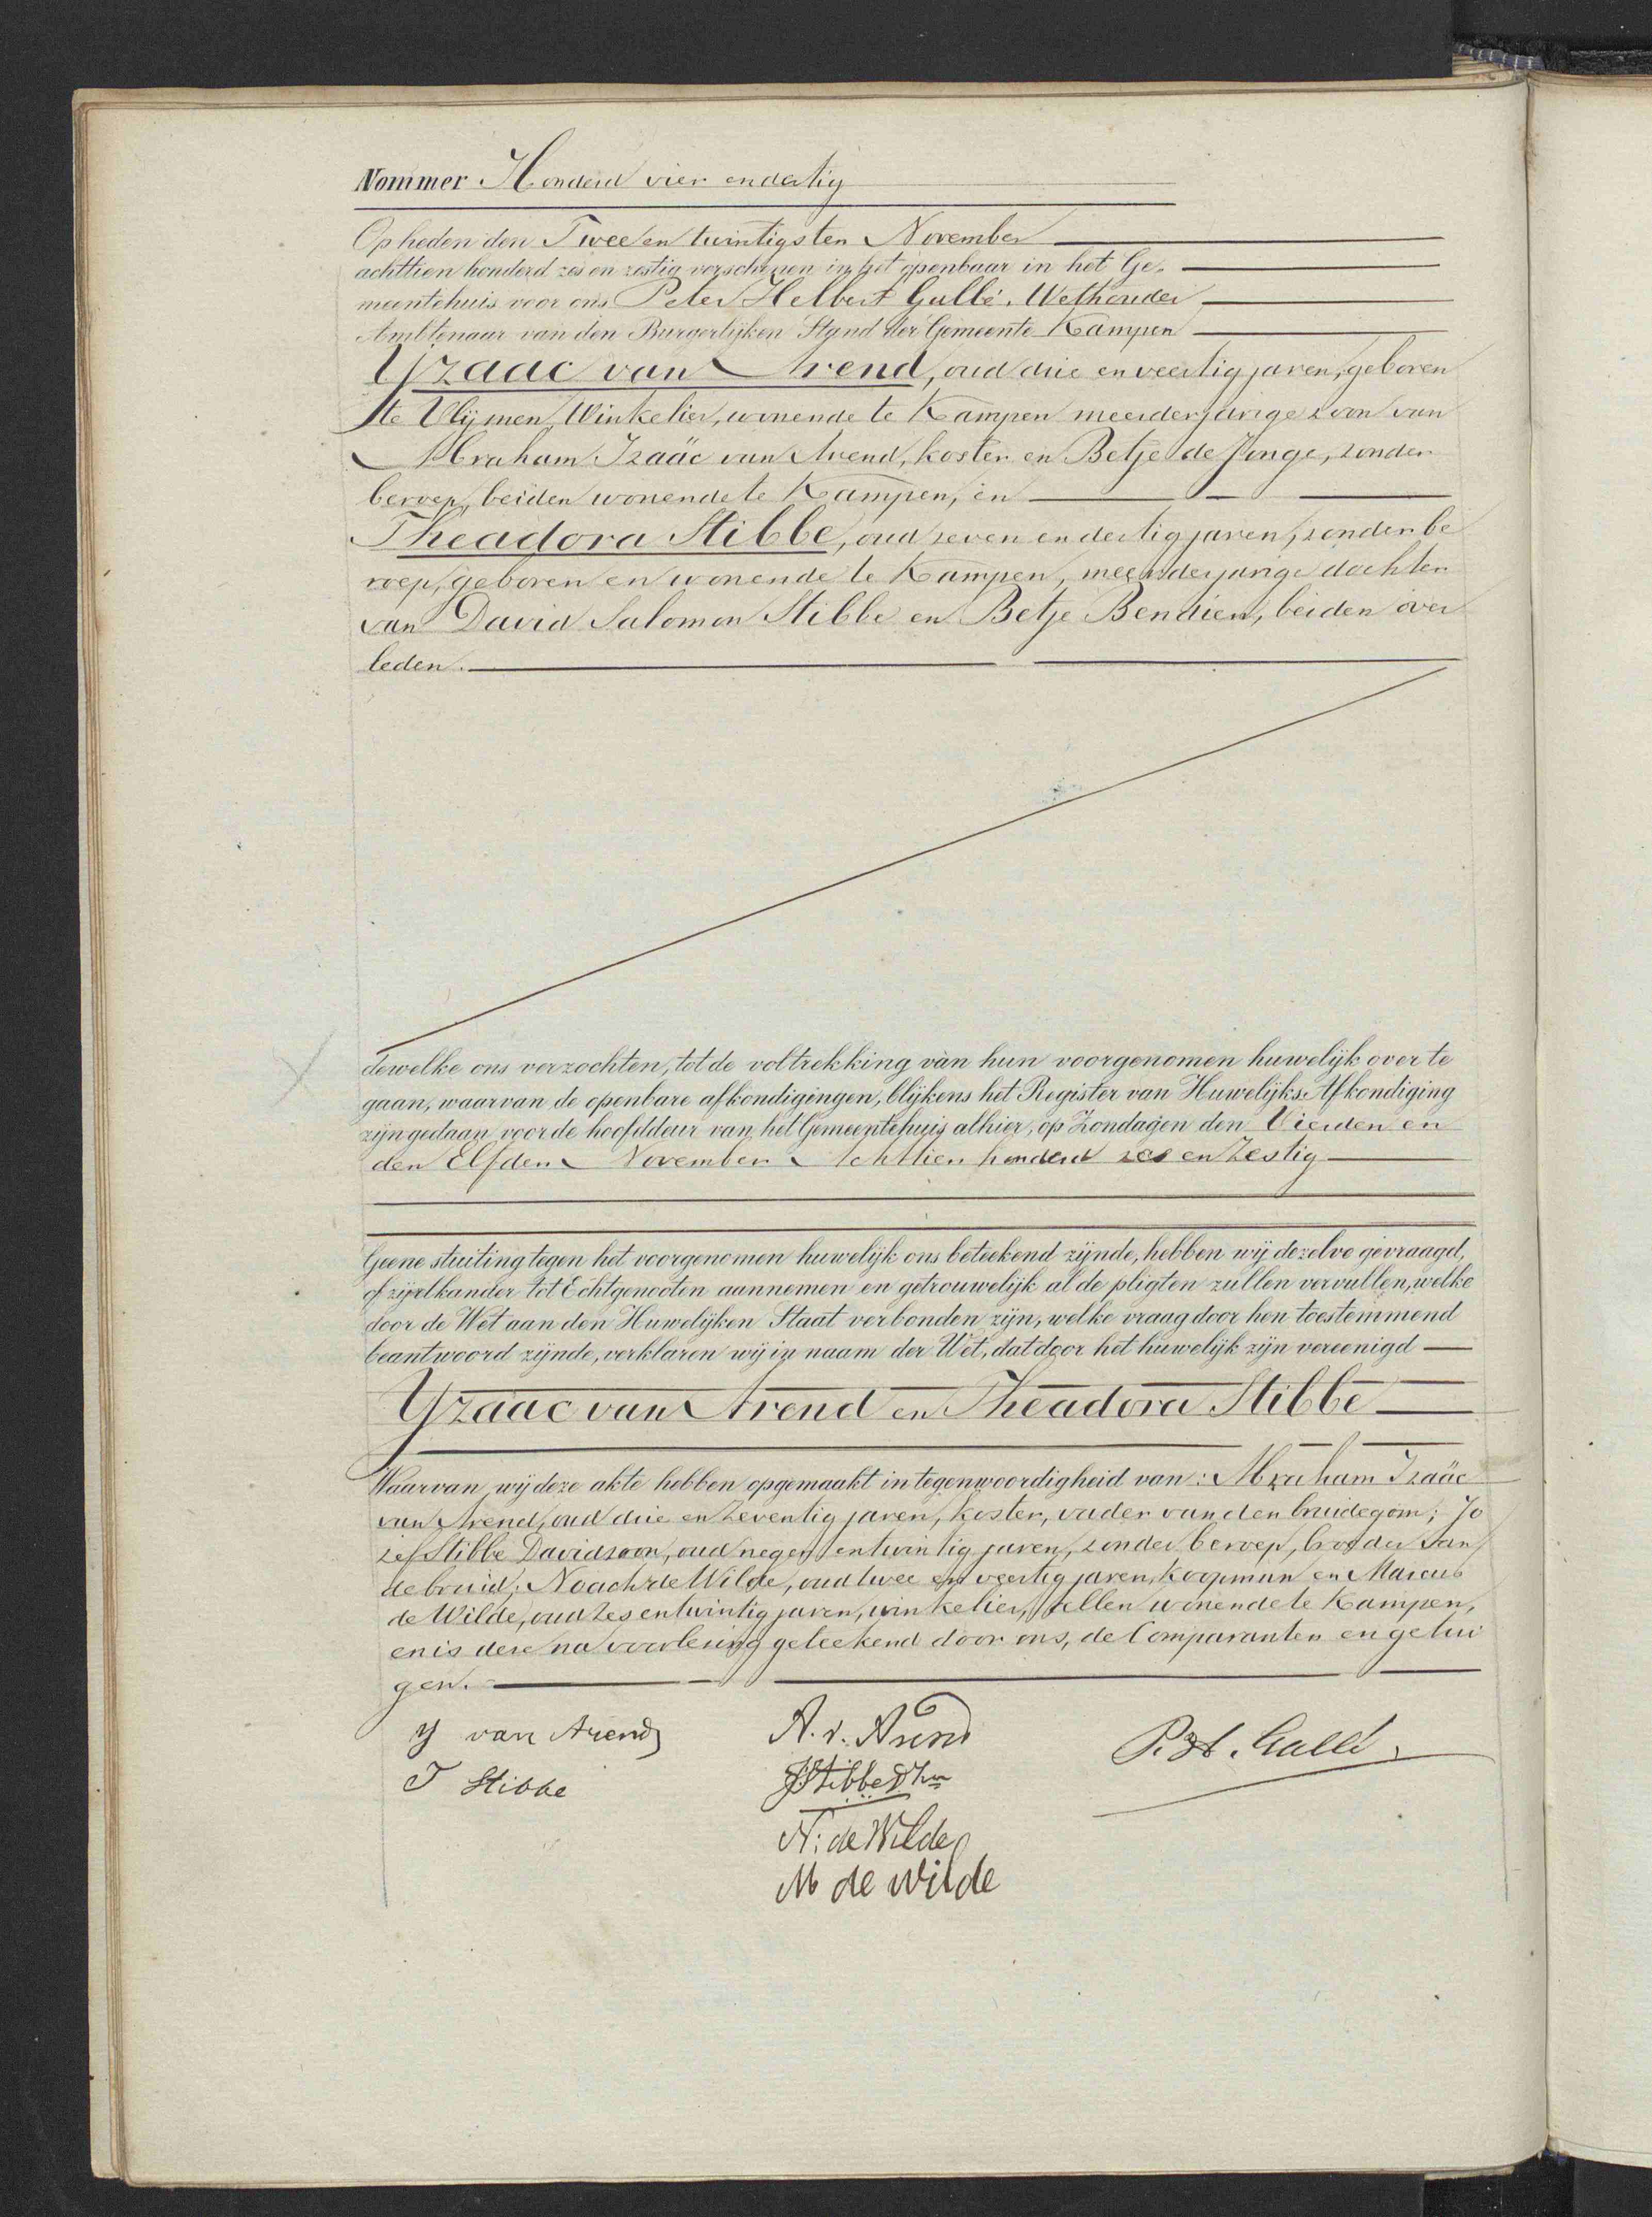 Nommer Honderd vier en dertig
Op heden den Twee en twintigsten November
achttien honderd zes en zestig verschenen in het openbaar in het Ge-
meentehuis voor ons Peter Helbert Gallé, Wethouder
Ambtenaar van den Burgerlijken Stand der Gemeente Kampen
Yzaac van Arend, oud drie en veertig jaren, geboren
te Vlijmen, Winkelier, wonende te Kampen meerderjarige zoon van
Abraham Izaäc van Arend, koster en Betje de Jonge, zonder
beroep, beiden wonende te Kampen, en
Theadora Stibbe, oud zeven en dertig jaren, zonder be
roep, geboren en wonende te Kampen, meerderjarige dochter
van David Salomon Stibbe en Betje Bendien, beiden over
leden.
dewelke ons verzochten, tot de voltrekking van hun voorgenomen huwelijk over te
gaan, waarvan de openbare afkondigingen, blijkens het Register van Huwelijks-Afkondiging
zijn gedaan voor de hoofddeur van het Gemeentehuis alhier, op Zondagen den Vierden en
den Elfden November Achttien honderd zes en Zestig
Geene stuiting tegen het voorgenomen huwelijk ons beteekend zijnde, hebben wij dezelve gevraagd,
of zij elkander tot Echtgenooten aannemen en getrouwelijk al de pligten zullen vervullen, welke
door de Wet aan den Huwelijken Staat verbonden zijn, welke vraag door hen toestemmend
beantwoord zijnde, verklaren wij in naam der Wet, dat door het huwelijk zijn vereenigd
Yzaac van Arend en Theadora Stibbe
Waarvan wij deze akte hebben opgemaakt in tegenwoordigheid van: Abraham Izaäc
van Arend, oud drie en Zeventig jaren, koster, vader van den bruidegom; Jo
zef Stibbe Davidszoon, oud negen en twintig jaren, zonder beroep, broeder van
de bruid; Noach de Wilde, oud twee en veertig jaren, Koopman en Marcus
de Wilde, oud Zes en twintig jaren, winkelier, allen wonende te Kampen,
en is deze na voorlezing geteekend door ons, de Comparanten en getui
gen.
Y van Arend A. v. Arend P. H. Gallé
T Stibbe JStibbe Dzn
N: de Wilde
M de Wilde